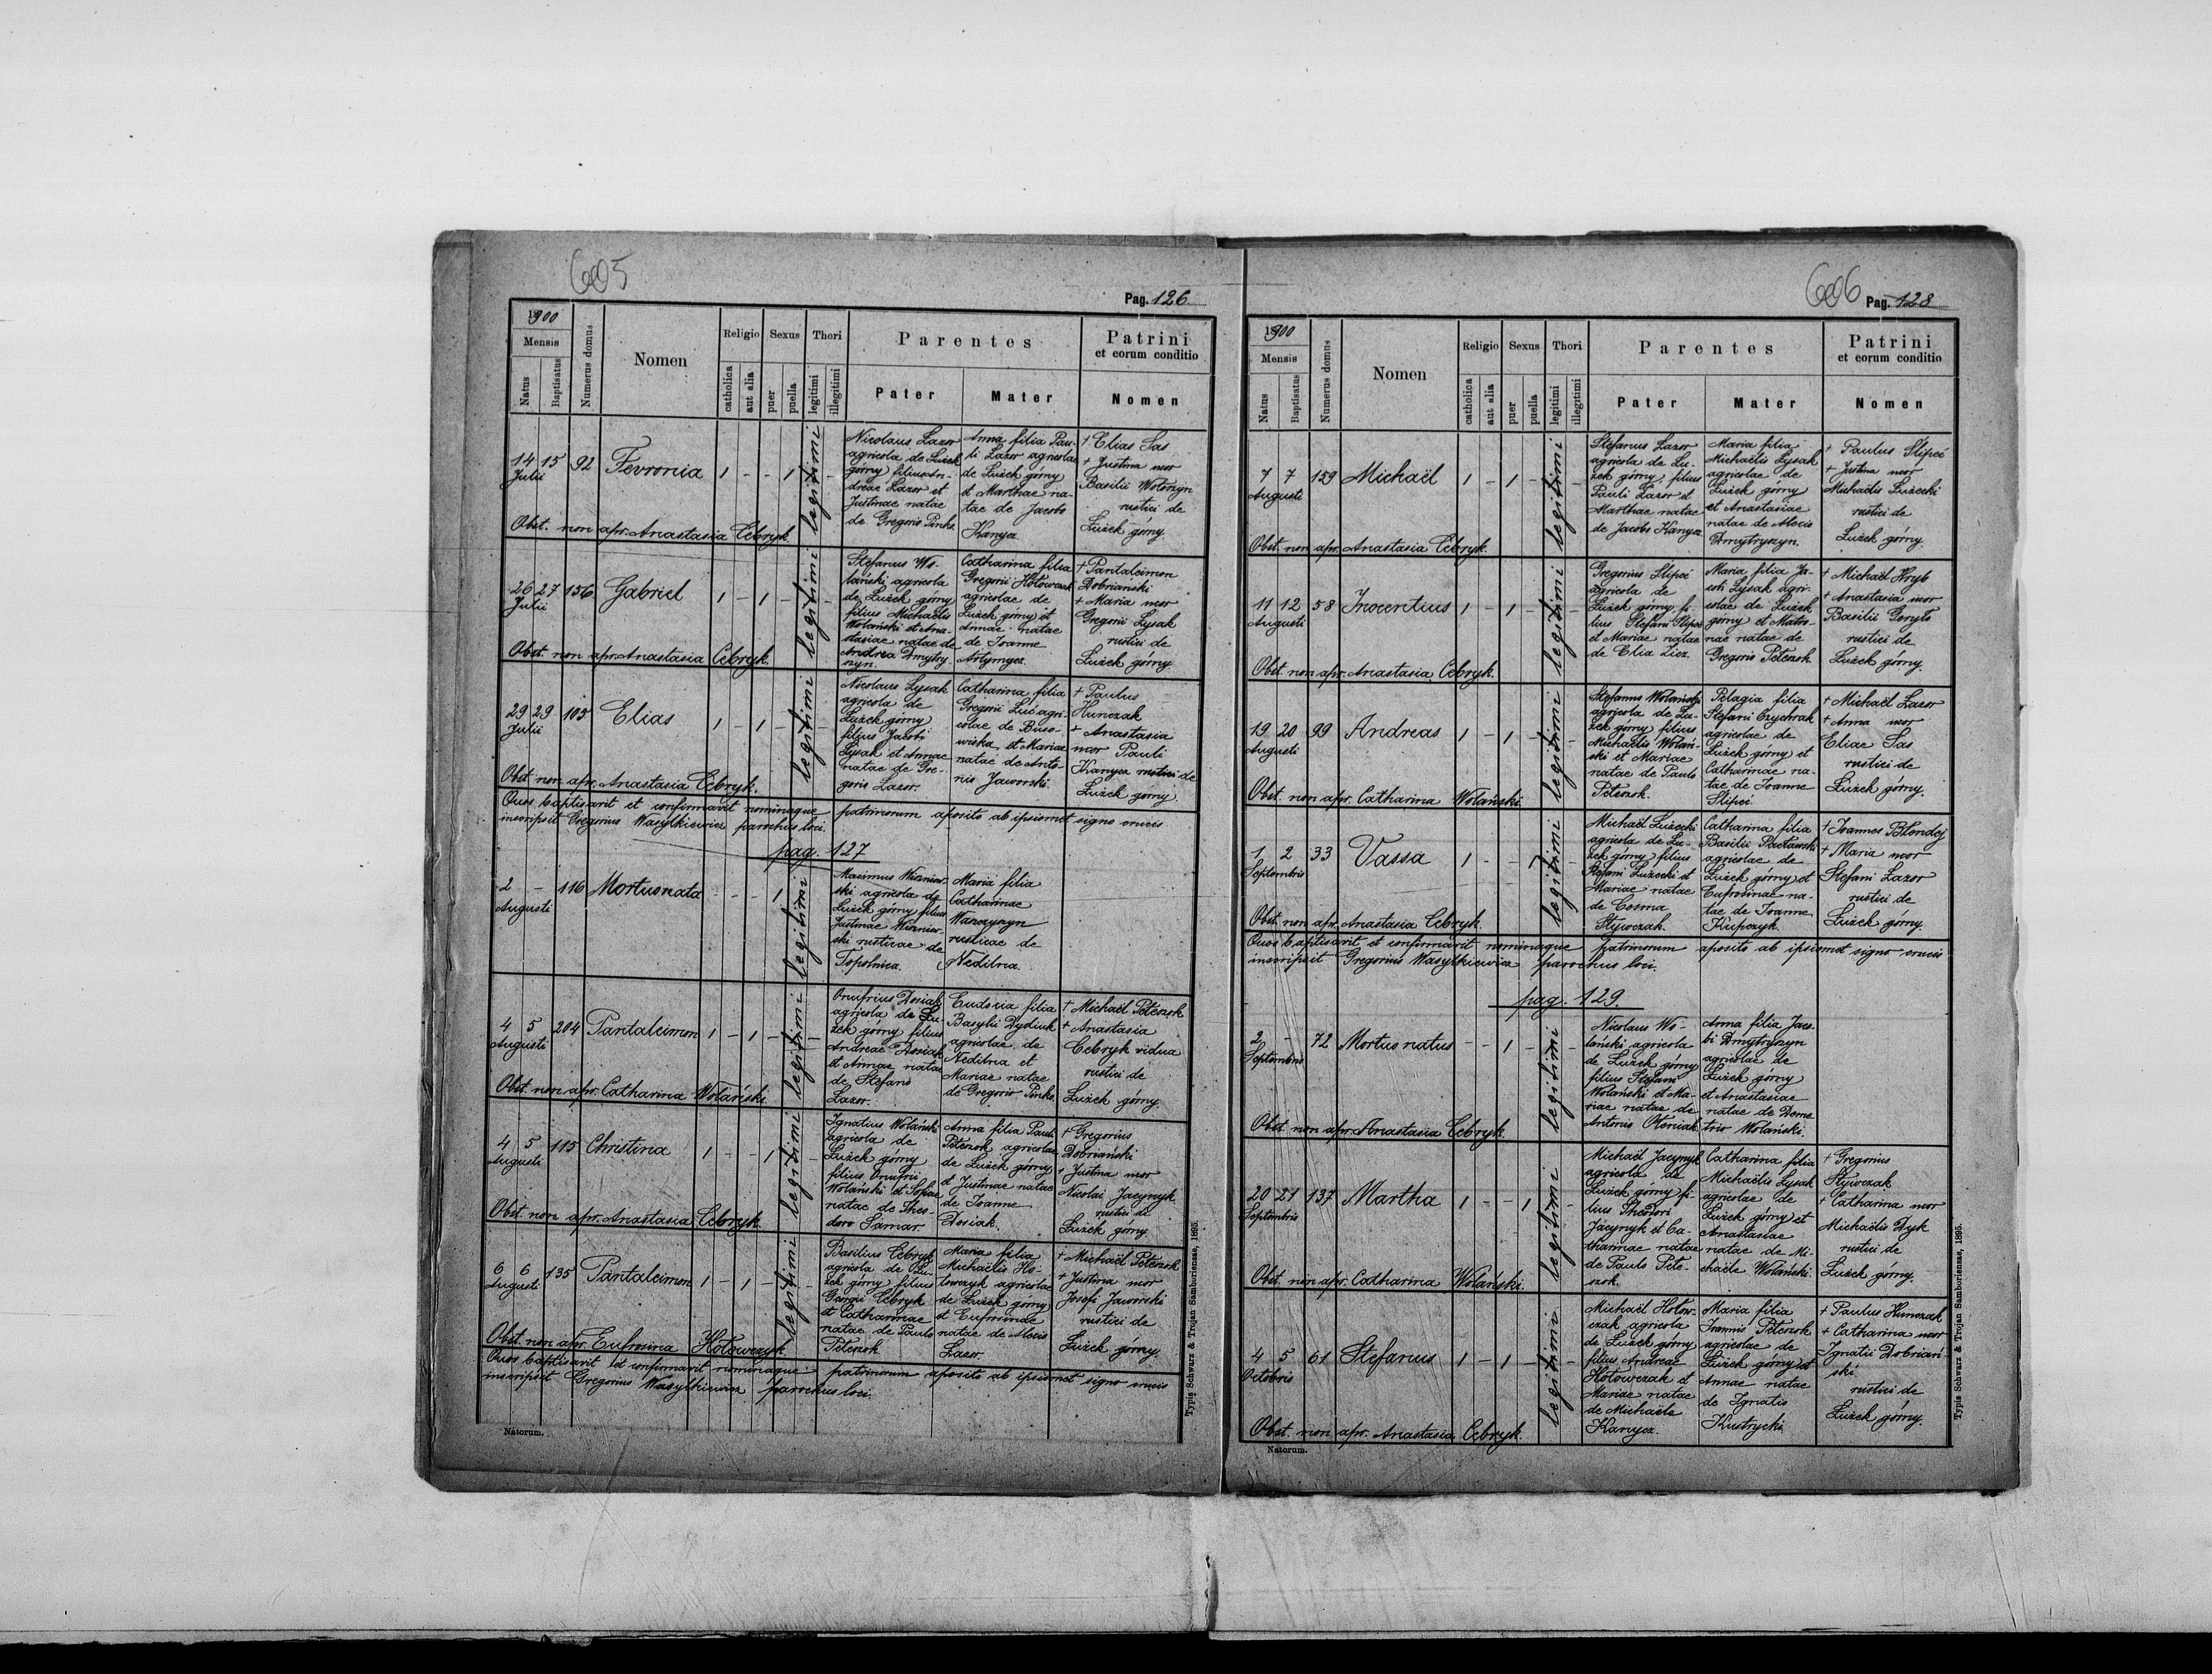 605
Pag. 126
1900
Mensis
Natus
Baptisatus
Numerus domus
Nomen
Religio
catholica
aut alia
Sexus
puer
puella
Thori
legitimi
illegitimi
Parentes
Pater
Mater
Patrini
et eorum conditio
Nomen
14 15 92 Fevronia 1 - - 1 legitimi -
Julii
Nicolaus Lazor
agricola de Łużek
górny filius An-
dreae Lazor et
Justinae natae
de Gregorio Pinko.
Anna filia Pau-
li Lazor agricolae
de Łużek górny
et Marthae na-
tae de Jacobo
Kanycz.
+ Elias Sas
+ Justina uxor
Basilii Wołoszyn
rustici de
Łużek górny.
Obst. non apr. Anastasia Cebryk.
26 27 156 Gabriel 1 - 1 - legitimi -
Julii
Stefanus Wo-
lański agricola
de Łużek górny
filius Michaëlis
Wolański et Ana-
stasiae natae de
Andrea Dmytry-
szyn.
Catharina filia
Gregorii Hołowczak
agricolae de
Łużek górny et
Annae natae
de Joanne
Artymycz.
+ Pantaleimon
Dobriański
+ Maria uxor
Gregorii Lysak
rustici de
Łużek górny
Obst. non apr. Anastasia Cebryk.
29 29 105 Elias 1 - 1 - legitimi -
Julii
Nicolaus Lysak
agricola de
Łużek górny
filius Jacobi
Lysak et Annae
natae de Gre-
gorio Lazor.
Catharina filia
Gregorii Luć agri-
colae de Buso-
wiska et Mariae
natae de Anto-
nio Jaworski.
+ Paulus
Hunczak
+ Anastasia
uxor Pauli
Kanycz rustici de
Łużek górny.
Obst. non apr. Anastasia Cebryk.
Quos baptisavit et confirmavit nominaque patrinorum aposito ab ipsismet signo crucis
inscripsit Gregorius Wasylkiewicz parochus loci.
pag. 127
2 - 116 Mortuonata - - - 1 legitimi
Augusti
Maximus Wiszniow-
ski agricola de
Łużek górny filius
Justinae Wiszniow-
ski rusticae de
Topolnica.
Maria filia
Catharinae
rusticae de
Nedilna.
4 5 204 Pantaleimon 1 - 1 - legitimi -
Augusti
Onufrius Dosiak
agricola de Łu-
żek górny filius
Andreae Dosiak
et Annae natae
de Stefano
Lazor.
Eudoxia filia
Basylii Dydiuk
agricolae de
Nedilna et
Mariae natae
de Gregorio Pinko.
+ Michaël Peteszok
+ Anastasia
Cebryk vidua
rustici de
Łużek górny.
Obst. non apr. Catharina Wolański.
4 5 115 Christina 1 - - 1 legitimi -
Augusti
Ignatius Wolański
agricola de
Łużek górny
filius Onufrii
Wolański et Sofiae
natae de Theo-
doro Samar.
Anna filia Pauli
Peteszok agricolae
de Łużek górny
et Justinae natae
de Joanne
Dosiak.
+ Gregorius
Dobriański
+ Justina uxor
Nicolai Jacynyk
rustici de
Łużek górny.
Obst. non apr. Anastasia Cebryk.
6 6 135 Pantaleimon 1 - 1 - legitimi -
Augusti
Basilius Cebryk
agricola de Łu-
żek górny filius
Georgii Cebryk
et Catharinae
natae de Paulo
Peteszok
Maria filia
Michaëlis Ho-
łowczyk agricolae
de Łużek górny
et Eufrosinae
natae de Alexio
Lazor
+ Michaël Peteszok
+ Justina uxor
Josefi Jaworski
rustici de
Łużek górny.
Obst. non apr. Eufrosina Hołowczyk.
Quos baptisavit et confirmavit nominaque patrinorum aposito ab ipsismet signo crucis
inscripsit Gregorius Wasylkiewicz parochus loci.
Natorum.
Typis Schwarz & Trojan Samboriense, 1895.
606
Pag. 128
1900
Mensis
Natus
Baptisatus
Numerus domus
Nomen
Religio
catholica
aut alia
Sexus
puer
puella
Thori
legitimi
illegitimi
Parentes
Pater
Mater
Patrini
et eorum conditio
Nomen
7 7 159 Michaël 1 - 1 - legitimi -
Augusti
Stefanus Lazor
agricola de Łu-
żek górny, filius
Pauli Lazor et
Marthae natae
de Jacobo Kanycz.
Maria filia
Michaëlis Lysak
agricolae de
Łużek górny
et Anastasiae
natae de Alexio
Dmytryszyn.
+ Paulus Slipeć
+ Justina uxor
Michaëlis Łużecki
rustici de
Łużek górny.
Obst. non apr. Anastasia Cebryk.
11 12 58 Inocentius 1 - 1 - legitimi -
Augusti
Gregorius Slipeć
agricola de
Łużek górny, fi-
lius Stefani Slipeć
et Mariae natae
de Elia Zicz.
Maria filia Ja-
cobi Lysak agri-
colae de Łużek
górny et Matro-
nae natae de
Gregorio Peteszok.
+ Michaël Hryb
+ Anastasia uxor
Basilii Goryło
rustici de
Łużek górny.
Obst. non apr. Anastasia Cebryk.
19 20 99 Andreas 1 - 1 - legitimi -
Augusti
Stefanus Wolański
agricola de Łu-
żek górny filius
Michaëlis Wolań-
ski et Mariae
natae de Paulo
Peteszok.
Pelagia filia
Stefani
agricolae de
Łużek górny et
Catharinae na-
tae de Joanne
Slipeć.
+ Michaël Lazor
+ Anna uxor
Eliae Sas
rustici de
Łużek górny.
Obst. non apr. Catharina Wolański.
1 2 33 Vassa 1 - - 1 legitimi -
Septembris
Michaël Łużecki
agricola de Łu-
żek górny filius
Stefani Łużecki et
Mariae natae
de Cosma
Stywczak.
Catharina filia
Basilii Pacławski
agricolae de
Łużek górny et
Eufrosinae na-
tae de Joanne
Kupczyk.
+ Joannes Błondej
+ Maria uxor
Stefani Lazor
rustici de
Łużek górny.
Obst. non apr. Anastasia Cebryk.
Quos baptisavit et confirmavit nominaque patrinorum aposito ab ipsismet signo crucis
inscripsit Gregorius Wasylkiewicz parochus loci.
pag. 129.
2 - 72 Mortuo natus - - 1 - legitimi -
Septembris
Nicolaus Wo-
lański agricola
de Łużek górny
filius Stefani
Wolański et Ma-
riae natae de
Antonio
Anna filia Jaco-
bi Dmytryszyn
agricolae de
Łużek górny
et Anastasiae
natae de Deme-
trio Wolański.
Obst. non apr. Anastasia Cebryk.
20 21 137 Martha 1 - - 1 legitimi -
Septembris
Michaël Jacynyk
agricola de
Łużek górny fi-
lius Theodori
Jacynyk et Ca-
tharinae natae
de Paulo Pete-
szok.
Catharina filia
Michaëlis Lysak
agricolae de
Łużek górny et
Anastasiae
natae de Mi-
chaële Wolański.
+ Gregorius
Stywczak
+ Catharina uxor
Michaëlis Dyk
rustici de
Łużek górny.
Obst. non apr. Catharina Wolański.
4 5 61 Stefanus 1 - 1 - legitimi -
Octobris
Michaël Hołow-
czak agricola
de Łużek górny
filius Andreae
Hołowczak et
Mariae natae
de Michaële
Kanycz.
Maria filia
Joannis Peteszok
agricolae de
Łużek górny et
Annae natae
de Ignatio
Kustrycki.
+ Paulus Hunczak
+ Catharina uxor
Ignatii Dobriań-
ski
rustici de
Łużek górny.
Obst. non apr. Anastasia Cebryk.
Natorum.
Typis Schwarz & Trojan Samboriense, 1895.